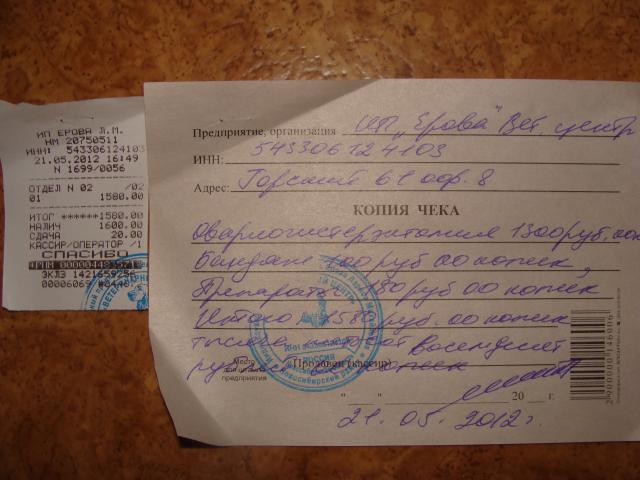 ИП ЕРОВА Л.М.
НМ 20750511
ИНН: 543306124103
21.05.2012 16:49
N 1699/0056
ОТДЕЛ N 02 /02
01 1580.00
ИТОГ ******1580.00
НАЛИЧ 1600.00
СДАЧА 20.00
КАССИР/ОПЕРАТОР /1
СПАСИБО
ЭКЛЗ 1421659256
Предприятие, организация ИП "Ерова" Вет. центр
ИНН: 543306124103
Адрес: 61 8
КОПИЯ ЧЕКА
Овариогистерэктомия 1300 руб. 00к
бандаж 100 руб 00 копеек,
Препараты 180 руб 00 копеек
Итого 1580 руб. 00 копеек
тысяча восемдесят
Место для штампа предприятия
Продавец (кассир)
РОССИЯ
" " 20 г.
21. 05. 2012г.